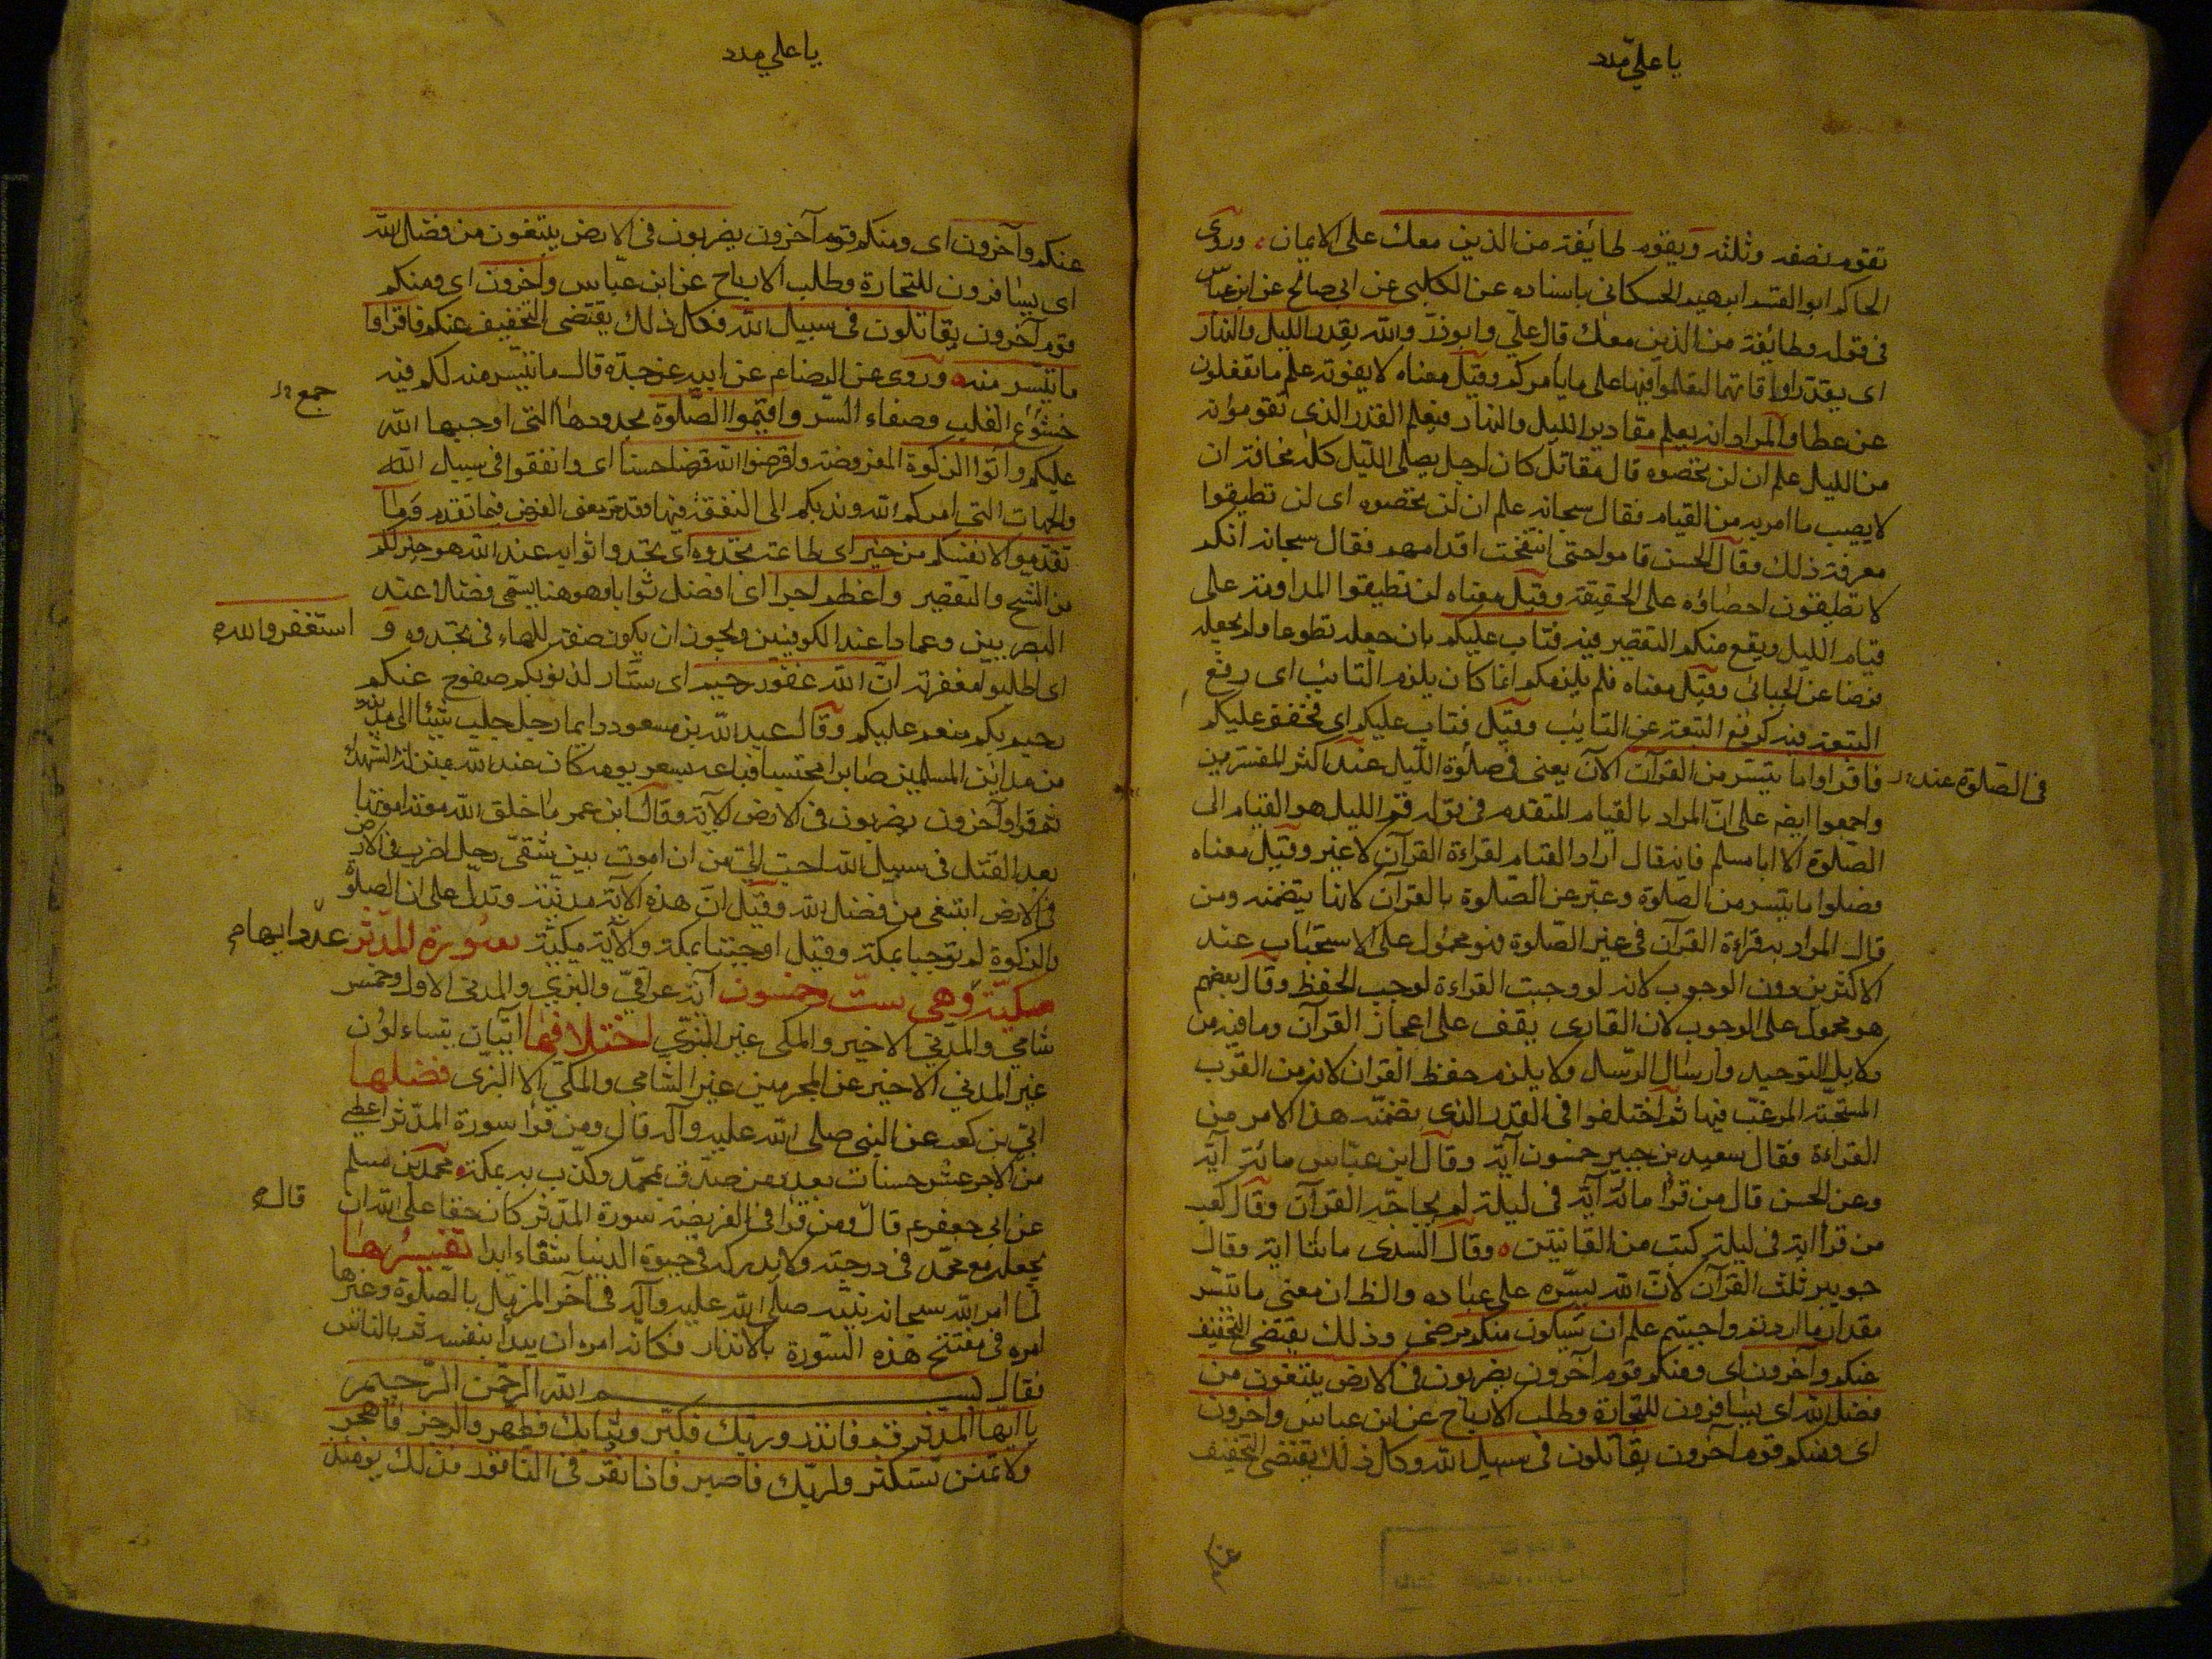 يا علي مدد
تقوم نصفه وثلثه ويقوم طائفة من الذين معك على الايمان وروى
الحاكم ابوالقسم ابرهيم الحسكانى باسناده عن الكلبى عن ابى صالح عن ابن عباس
فى قوله وطائفة من الذين معك قال على وابوذر والله يقدر الليل والنهار
اى يقدر اوقاتهما لتعلموا فيها على ما يأمركم وقيل معناه لا يفوته علم ما تفعلون
عن عطا والمراد انه يعلم مقادير الليل والنهار فيعلم القدر الذى تقومونه
من الليل علم ان لن تحصوه قال مقاتل كان الرجل يصلى الليل كله مخافة ان
لا يصيب ما امر به من القيام فقال سبحانه علم ان لن تحصوه اى لن تطيقوا
معرفة ذلك وقال الحسن قاموا حتى انتفخت اقدامهم فقال سبحانه انكم
لا تطيقون احصاؤه على الحقيقة وقيل معناه لن تطيقوا المداومة على
قيام الليل ويقع منكم التقصير فيه فتاب عليكم بان جعله تطوعا ولم يجعله
فرضا عن الجبائى وقيل معناه فلم يلزمكم اثما كان يلزم التائب اى رفع
التبعة فيه كرفع التبعة عن التائب وقيل فتاب عليكم اى فخفف عليكم
فاقراوا ما تيسر من القرآن الآن يعنى فى صلوة الليل عند اكثر المفسرين
فى الصلوة عند
واجمعوا ايضا على ان المراد بالقيام المتقدم فى قوله قم الليل هو القيام الى
الصلوة الا ابا مسلم فانه قال اراد القيام لقراءة القرآن لا غير وقيل معناه
فصلوا ما تيسر من الصلوة وعبر عن الصلوة بالقرآن لانها يتضمنه ومن
قال المراد به قراءة القرآن فى غير الصلوة فهو محمول على الاستحباب عند
الاكثرين دون الوجوب لانه لو وجبت القراءة لوجب الحفظ وقال بعضهم
هو محمول على الوجوب لان القارى يقف على اعجاز القرآن وما فيه من
دلايل التوحيد وارسال الرسل ولا يلزم حفظ القران لانه من القرب
المستحبة المرغب فيها ثم اختلفوا فى القدر الذى تضمنه هذا الامر من
القراءة فقال سعيد بن جبير خمسون آية وقال ابن عباس مائة آية
وعن الحسن قال من قرأ مائة آية فى ليلة لم يحاجه القرآن وقال كعب
من قرأ اية فى ليلة كتب من القانتين وقال السدى مائتا اية وقال
جويبر ثلث القرآن لان الله يسره على عباده والظ ان معنى ما تيسر
مقدار ما اردتم واحببتم علم ان سيكون منكم مرضى وذلك يقتضى التخفيف
عنكم وآخرون اى ومنكم قوم آخرون يضربون فى الارض يبتغون من
فضل الله اى يسافرون للتجارة وطلب الارباح عن ابن عباس وآخرون
اى ومنكم قوم آخرون يقاتلون فى سبيل الله وكل ذلك يقتضى التخفيف
يا علي مدد
عنكم وآخرون اى ومنكم قوم آخرون يضربون فى الارض يبتغون من فضل الله
اى يسافرون للتجارة وطلب الارباح عن ابن عباس وآخرون اى ومنكم
قوم آخرون يقاتلون فى سبيل الله فكل ذلك يقتضى التخفيف عنكم فاقراوا
ما تيسر منه وروى عن الرضا عم عن ابيه عن جده قال ما تيسر منه لكم فيه
خشوع القلب وصفاء السر واقيموا الصلوة بحدودها التى اوجبها الله
عليكم واتوا الزكوة المفروضة واقرضوا الله قرضا حسنا اى وانفقوا فى سبيل الله
والجهات التى امركم الله وندبكم الى النفقة فيها وقد مر معنى القرض فيما تقدم وما
تقدموا لانفسكم من خير اى طاعة تجدوه اى تجدوا ثوابه عند الله هو خير لكم
من الشح والتقصير واعظم اجرا اى افضل ثوابا وهو هنا يسمى فصلا عند
البصريين وعمادا عند الكوفيين ويجوز ان يكون صفة للهاء فى تجدوه و
استغفروا الله
اى اطلبوا مغفرته ان الله غفور رحيم اى ستار لذنوبكم صفوح عنكم
رحيم بكم منعم عليكم وقال عبد الله بن مسعود وايما رجل جلب شيئا الى مدينة
من مداين المسلمين صابرا محتسبا فباعه بسعر يومه كان عند الله بمنزلة الشهداء
ثم قرا وآخرون يضربون فى الارض الآية وقال ابن عمر ما خلق الله موتة اموتها
بعد القتل فى سبيل الله احب الى من ان اموت بين شقى رحل اضرب فى الارض
فى الارض ابتغى من فضل الله وقيل ان هذه الآية مدنية وتدل على ان الصلوة
والزكوة لم توجبا بمكة وقيل اوجبتا بمكة والآية مكية سورة المدثر عدد ايها
مكية وهى ست وخمسون آية عراقى والبزى والمدنى الاول وخمس
شامى والمدنى الاخير والمكى غير البزى اختلافها آيتان يتساءلون
غير المدنى الاخير عن المجرمين غير الشامى والمكى الا البزى فضلها
ابى بن كعب عن النبى صلى الله عليه وآله قال ومن قرأ سورة المدثر اعطى
من الاجر عشر حسنات بعدد من صدق بمحمد وكذب به بمكة محمد بن مسلم
عن ابى جعفر عم قال ومن قرأ فى الفريضة سورة المدثر كان حقا على الله ان
قال
يجعله مع محمد فى درجته ولا يدركه فى حيوة الدنيا شقاء ابدا تفسيرها
لما امر الله سبحانه نبيه صلى الله عليه وآله فى آخر المزمل بالصلوة وغيرها
امره فى مفتتح هذه السورة بالانذار فكانه امره ان يبدأ بنفسه ثم بالناس
فقال بسم الله الرحمن الرحيم
يا ايها المدثر قم فانذر وربك فكبر وثيابك فطهر والرجز فاهجر
ولا تمنن تستكثر ولربك فاصبر فاذا نقر فى الناقور فذلك يومئذ